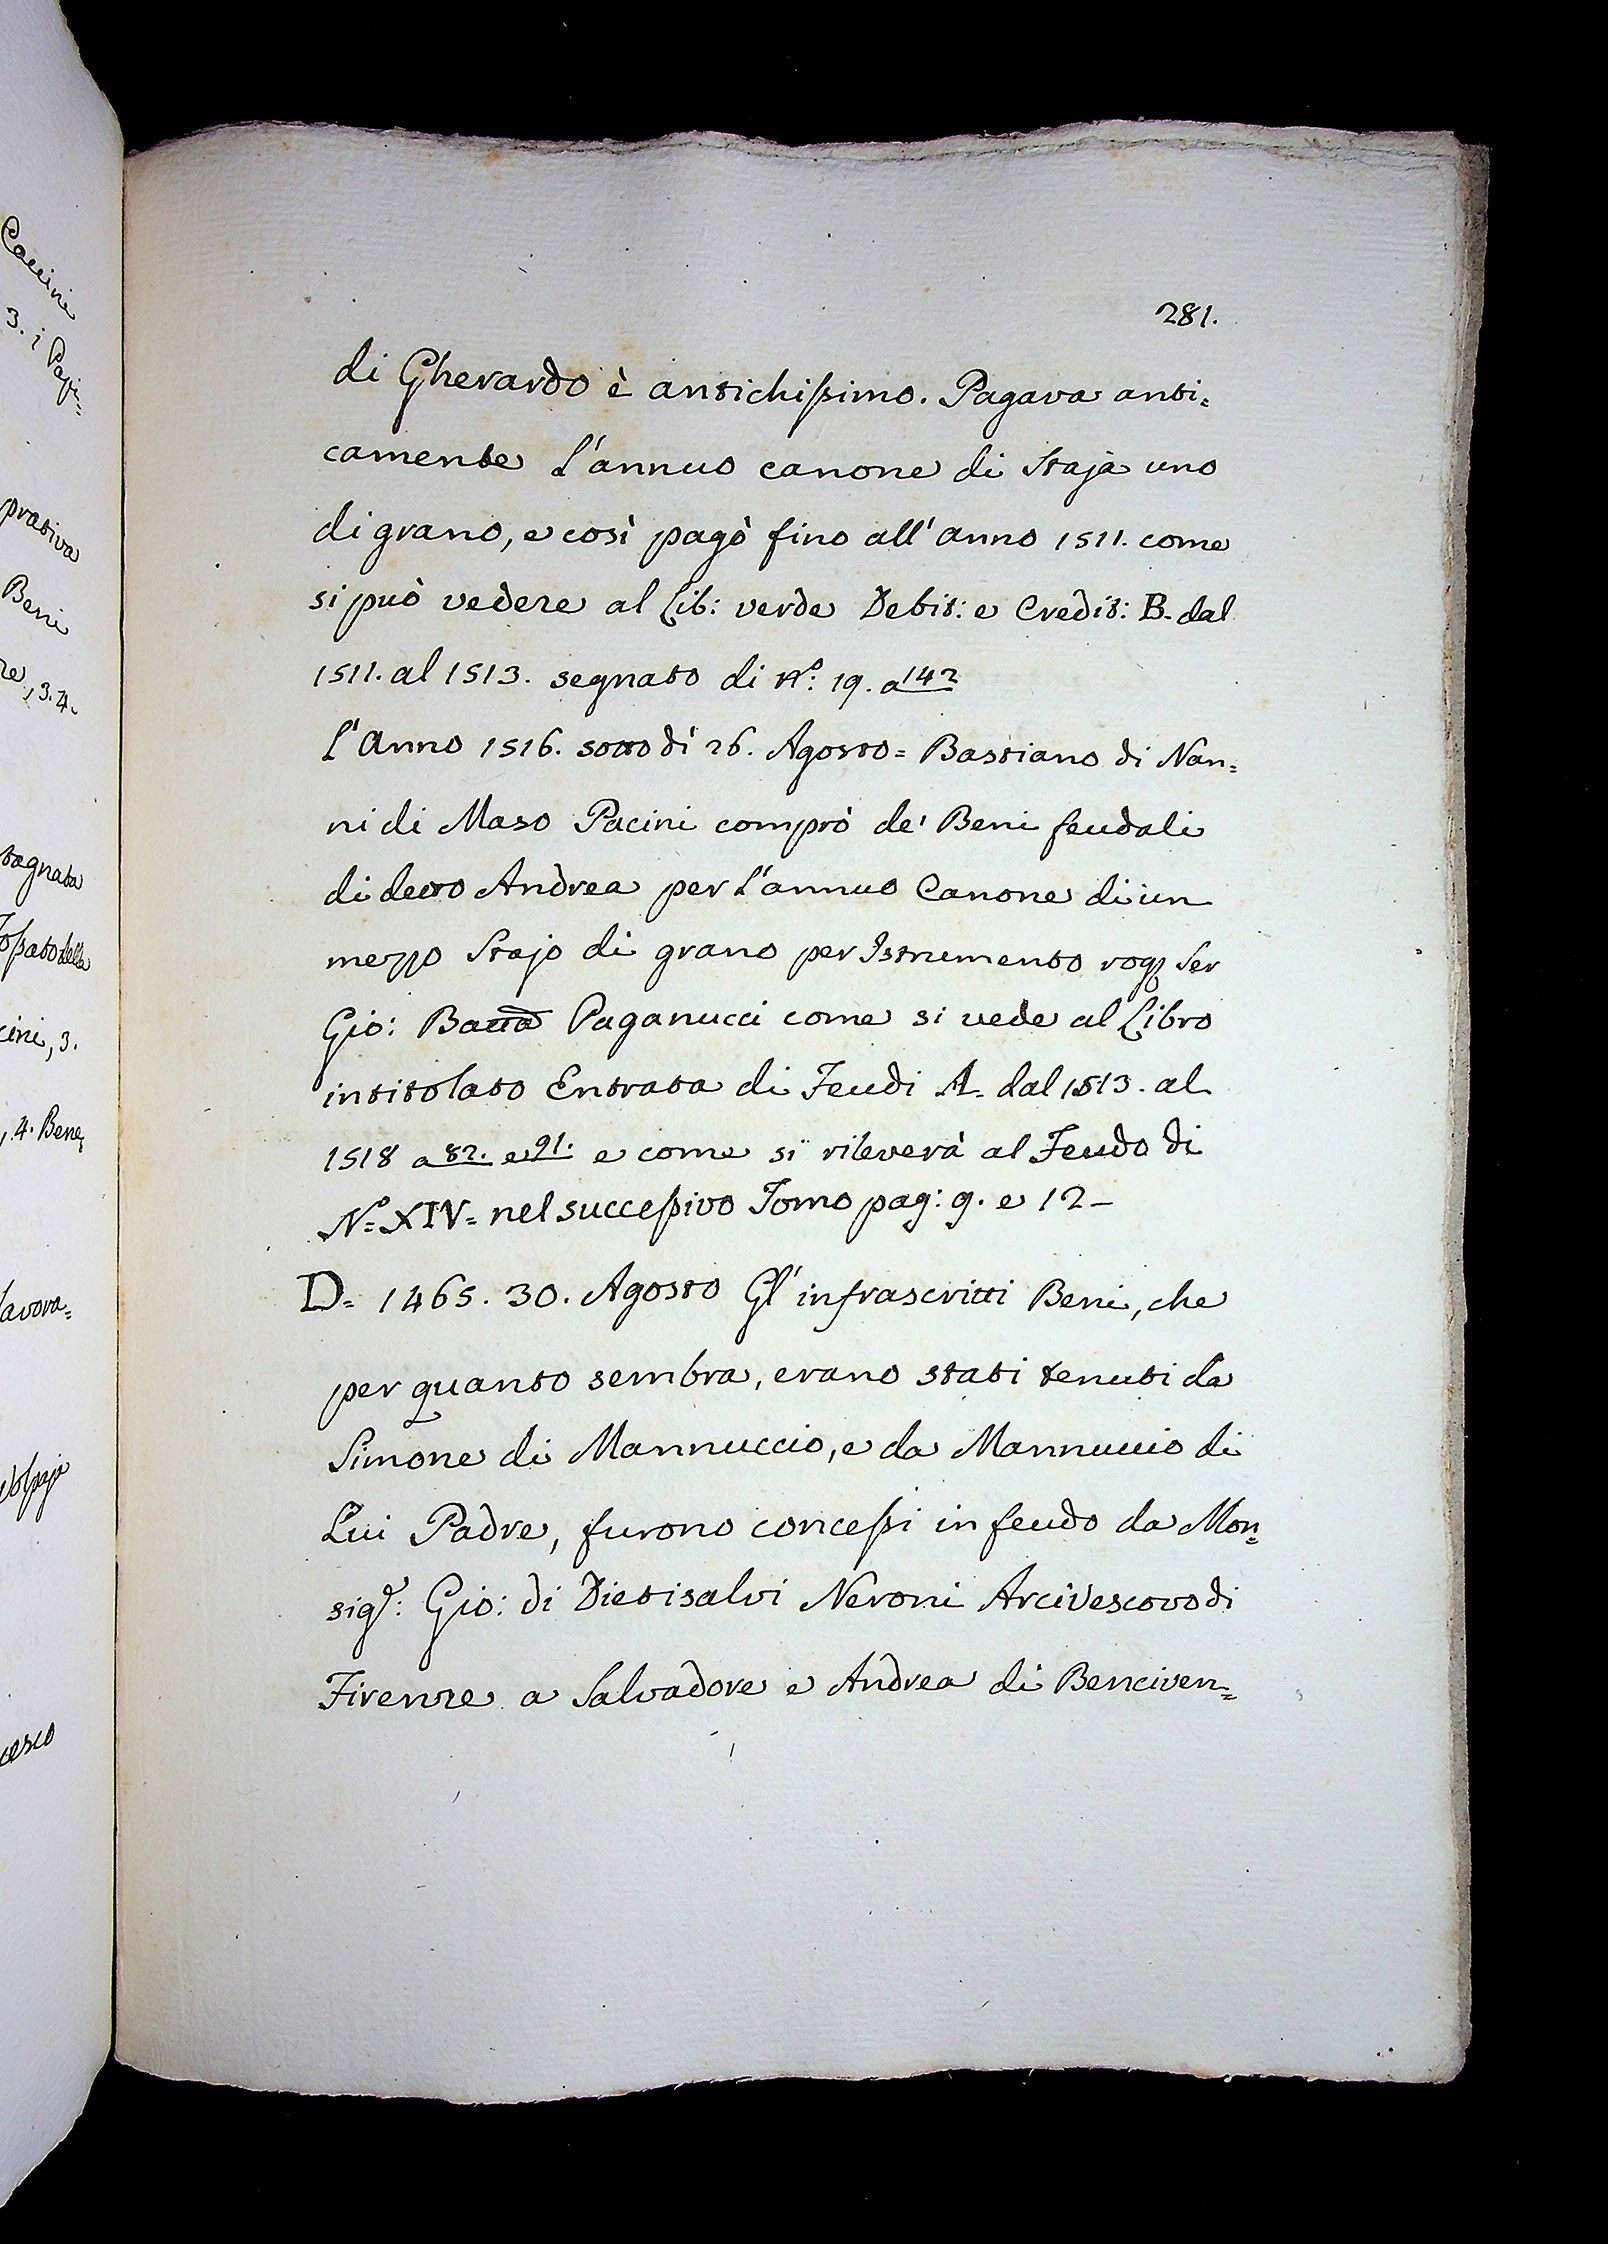 Pacini
3. i Papi=
prativa
Beni
re, 3. 4.
stagnata
ossato della
cini, 3.
, 4. Bene,
lavora=
Volpaja
cesco
281.
di Gherardo è antichissimo. Pagava anti=
camente l'annuo canone di Staja uno
di grano, e così pagò fino all'anno 1511. come
si può vedere al Lib: verde Debit: e Credit: B. dal
1511. al 1513. segnato di N.º: 19. a 142
L'Anno 1516. sotto dì 26. Agosto = Bastiano di Nan=
ni di Maso Pacini comprò de' Beni feudali
di detto Andrea per l'annuo Canone di un
mezzo Stajo di grano per Istrumento rog. Ser
Gio: Batta Paganucci come si vede al Libro
intitolato Entrata di Feudi A. dal 1513. al
1518 a 82. e 91. e come si rileverà al Feudo di
N.º= XIV= nel successivo Tomo pag: 9. e 12-
D= 1465. 30. Agosto Gl'infrascritti Beni, che
per quanto sembra, erano stati tenuti da
Simone di Mannuccio, e da Mannuccio di
Lui Padre, furono concessi in feudo da Mon=
sig.r: Gio: di Dietisalvi Neroni Arcivescovo di
Firenze a Salvadore e Andrea di Benciven=